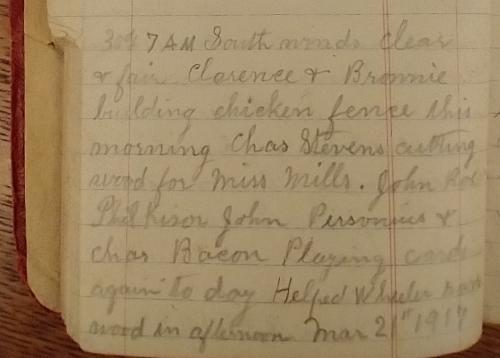 30° 7 AM South winds clear
& fair Clarence & Brownie
building chicken fence this
morning Chas Stevens cutting
wood for Miss Mills. John
Phil Kisor John Personius &
Chas Bacon Playing cards
again to day Helped Wheeler
wood in afternoon Mar 21st 1917